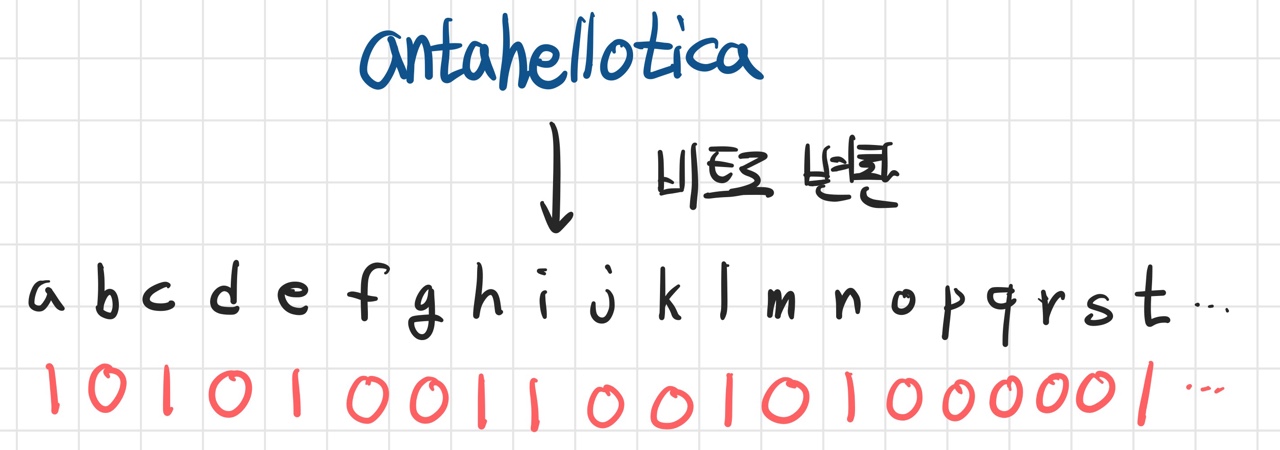 antahellotica
비트로 변환
a b c d e f g h i j k l m n o p q r s t ...
1 0 1 0 1 0 0 1 1 0 0 1 0 1 0 0 0 0 0 1 ...